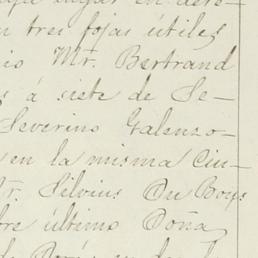 lugar en
n tres fojas útiles
io Mr. Bertrand
s á siete de Se-
Severino Galenzo-
en la misma Ciu-
r. Silvius Du Boys
bre último Doña